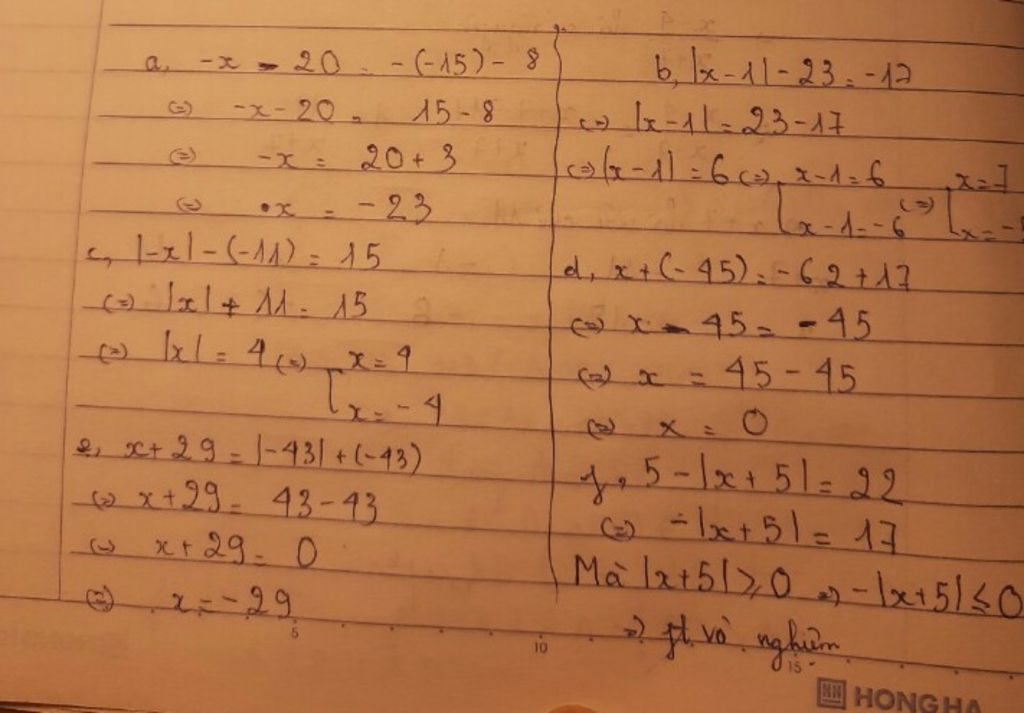 a, -x - 20 = -(-15) - 8
(=) -x - 20 = 15 - 8
(=) -x = 20 + 3
(=) x = -23
c, |-x| - (-11) = 15
(=) |x| + 11 = 15
(=) |x| = 4 (=) [ x = 4
x = -4
e, x + 29 = |-43| + (-43)
(=) x + 29 = 43 - 43
(=) x + 29 = 0
(=) x = -29
b, |x - 1| - 23 = -17
(=) |x - 1| = 23 - 17
(=) |x - 1| = 6 (=) [ x - 1 = 6 (=) [ x = 7
x - 1 = -6 x = -
d, x + (-45) = -62 + 17
(=) x - 45 = -45
(=) x = 45 - 45
(=) x = 0
f, 5 - |x + 5| = 22
(=) -|x + 5| = 17
Mà |x + 5| ≥ 0 => -|x + 5| ≤ 0
=> pt vô nghiệm
5 10 15
HONG HA